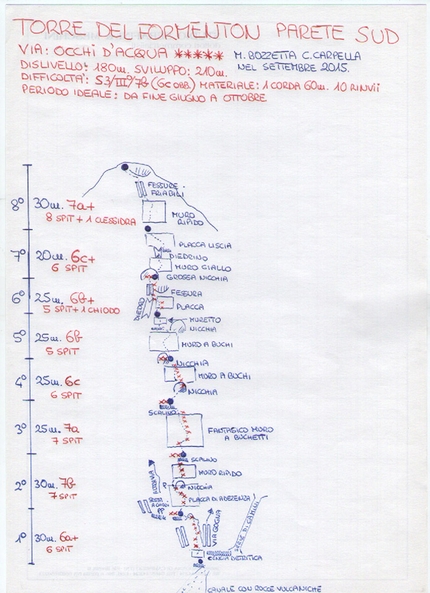 TORRE DEL FORMENTON PARETE SUD
VIA: OCCHI D'ACQUA ***** M. BOZZETTA C. CARPELLA
DISLIVELLO: 180m. SVILUPPO: 210m. NEL SETTEMBRE 2015.
DIFFICOLTA': S3/III°/7b (6c OBB) MATERIALE: 1 CORDA 60m. 10 RINVII
PERIODO IDEALE: DA FINE GIUGNO A OTTOBRE
FESSURE FRIABILI
8° 30m. 7a+
8 SPIT + 1 CLESSIDRA
MURO RIPIDO
PLACCA LISCIA
7° 20m. 6c+
6 SPIT
DIEDRINO
MURO GIALLO
GROSSA NICCHIA
6° 25m. 6b+
5 SPIT + 1 CHIODO
DIEDRO
FESSURA
PLACCA
MURETTO
NICCHIA
5° 25m. 6b
5 SPIT
MURO A BUCHI
NICCHIA
4° 25m. 6c
6 SPIT
MURO A BUCHI
NICCHIA
SCALINO
3° 25m. 7a
7 SPIT
FANTASTICO MURO
A BUCHETTI
SCALINO
2° 30m. 7b
7 SPIT
MURO RIPIDO
NICCHIA
PLACCA DI ADERENZA
1° 30m. 6a+
6 SPIT
VIA GOGNA
CENGIA DETRITICA
CANALE CON ROCCE VULCANICHE